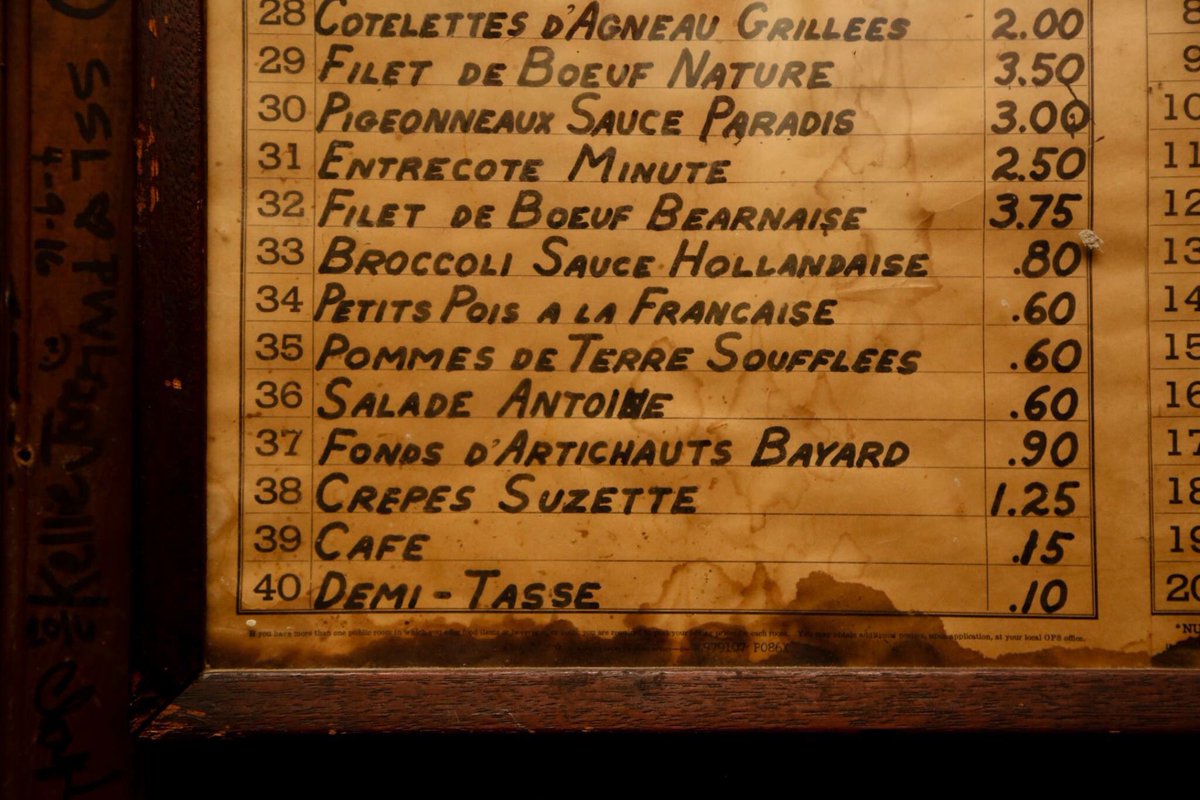 28 COTELETTES D'AGNEAU GRILLEES 2.00
29 FILET DE BOEUF NATURE 3.50
30 PIGEONNEAUX SAUCE PARADIS 3.00
31 ENTRECOTE MINUTE 2.50
32 FILET DE BOEUF BEARNAISE 3.75
33 BROCCOLI SAUCE HOLLANDAISE .80
34 PETITS POIS A LA FRANCAISE .60
35 POMMES DE TERRE SOUFFLEES .60
36 SALADE ANTOINE .60
37 FONDS D'ARTICHAUTS BAYARD .90
38 CREPES SUZETTE 1.25
39 CAFE .15
40 DEMI-TASSE .10
If you have more than one public room in which you you are your each room. You may obtain additional application, at your local OPS office.
P086X
9
10
11
12
13
14
15
16
17
18
19
20
*NU
Kelle